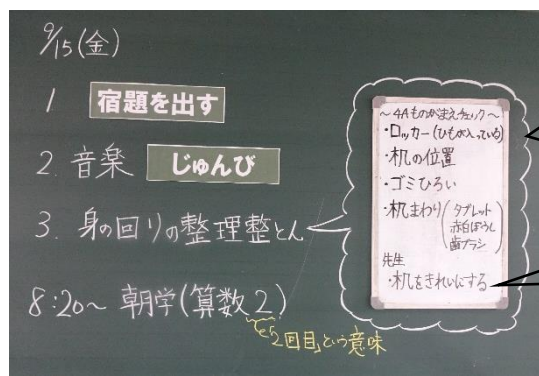 9/15(金)
1 宿題を出す
2. 音楽 じゅんび
3. 身の回りの整理整とん
8:20~ 朝学(算数2)
「2回目」という意味
~4Aものがまえチェック~
・ロッカー(ひもが入っている)
・机の位置
・ゴミひろい
・机まわり(タブレット
赤白ぼうし
歯ブラシ)
先生
・机をきれいにする